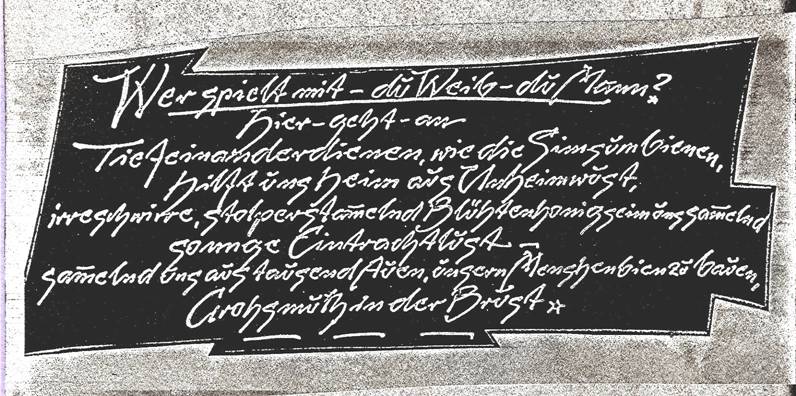 Wer spielt mit – dŭ Weib – dŭ Mann?
hier – geht – an
Tiefeinanderdienen, wie die Simsŭmbienen,
hilft ŭns heim aŭs Unheimwŭst,
irreschwirre, stolperstam̄elnd Blühtenhonigseim ŭns sam̄elnd
sonnige Eintrachtlŭst –
sam̄elnd ŭns aŭs taŭsend Aŭen, ŭnsern Menshenbien zŭ baŭen,
Grohsmŭth in der Brŭst *